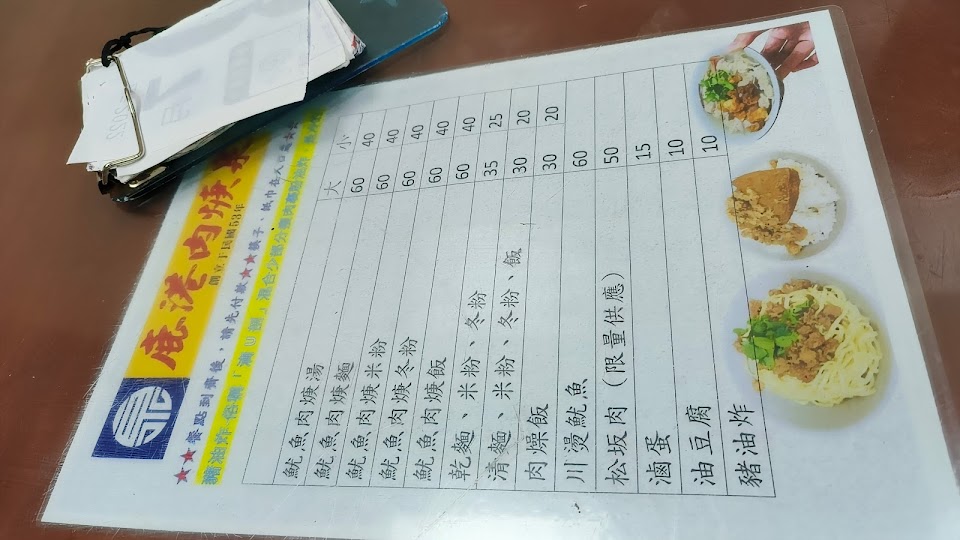 鹿港肉焿
創立于民國53年
★★餐點到齊後，請先付款★★筷子、紙巾在入口處
豬油炸 俗稱 混合少部分
大 小
魷魚肉焿湯 60 40
魷魚肉焿麵 60 40
魷魚肉焿米粉 60 40
魷魚肉焿冬粉 60 40
魷魚肉焿飯 60 40
乾麵、米粉、冬粉 35 25
清麵、米粉、冬粉、飯 30 20
肉燥飯 30 20
川燙魷魚 60
松坂肉（限量供應） 50
滷蛋 15
油豆腐 10
豬油炸 10